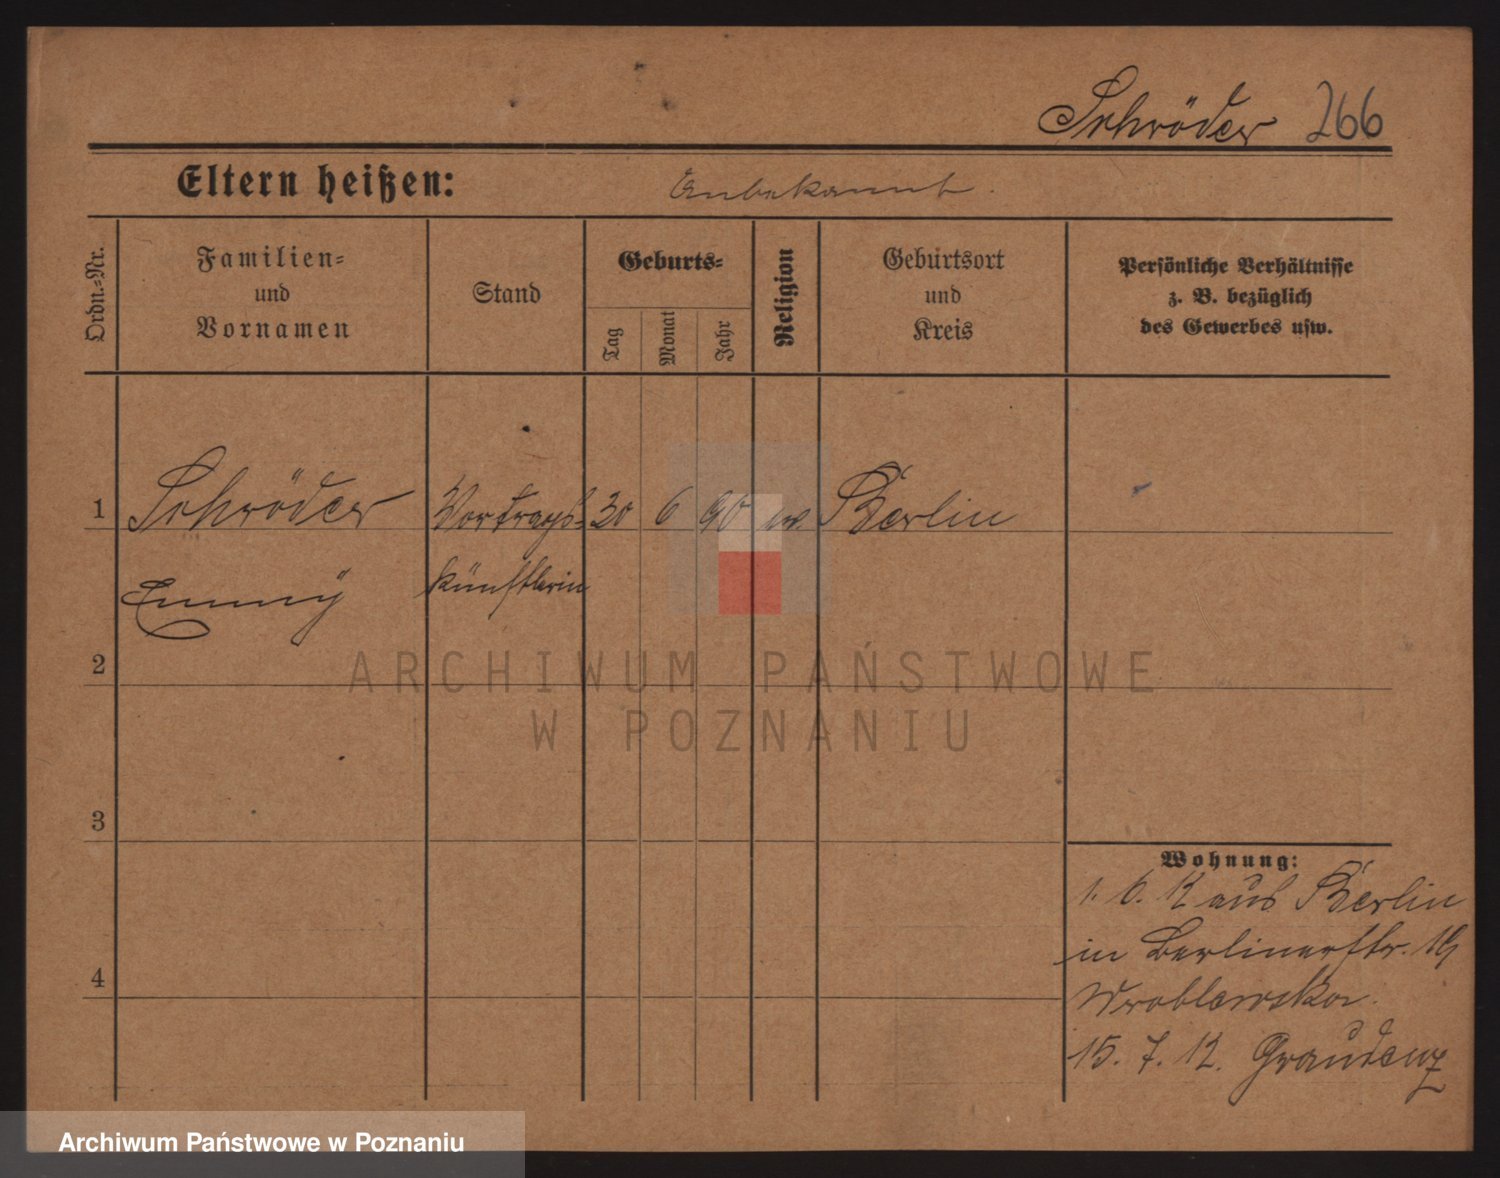 Schröder 266
Eltern heißen: Unbekannt.
Ordn.-Nr.
Familien-
und
Vornamen
Stand
Geburts-
Tag
Monat
Jahr
Religion
Geburtsort
und
Kreis
Persönliche Verhältnisse
z. B. bezüglich
des Gewerbes usw.
1 Schröder Vortrags- 30 6 90 w. Berlin
Emmy künstlerin
2
ARCHIWUM PAŃSTWOWE
W POZNANIU
3
Wohnung:
1. 6. 12 aus Berlin
in Berlinerstr.
Wroblewska.
4
15. 7. 12. Graudenz
Archiwum Państwowe w Poznaniu